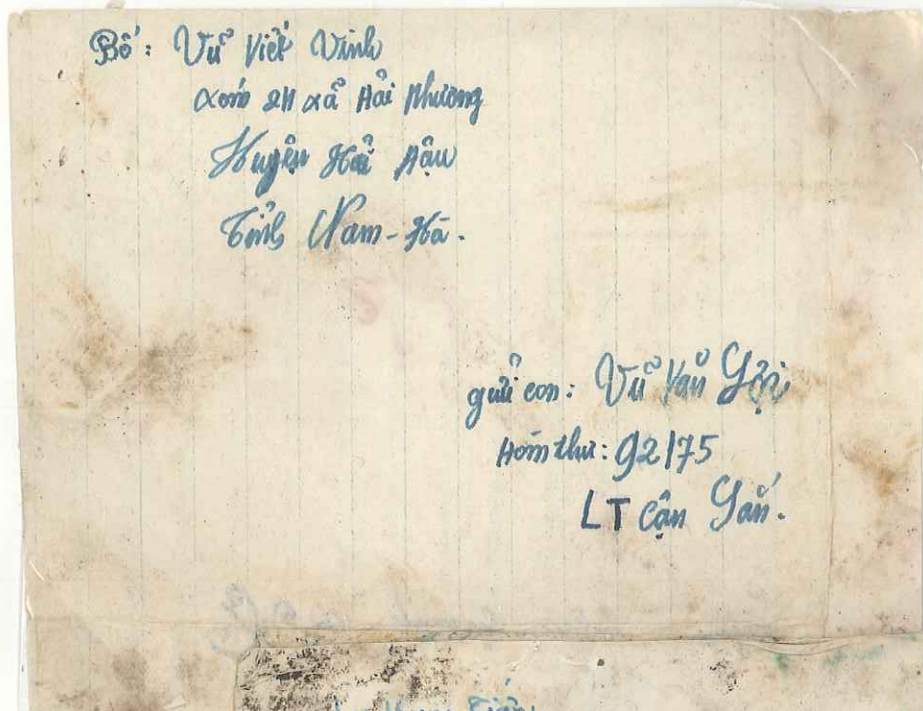 Bố: Vũ Viết Vinh
xóm 24 xã Hải Phương
Huyện Hải Hậu
Tỉnh Nam-Hà.
gửi con: Vũ Văn
Hòm thư: 92175
LT Cận